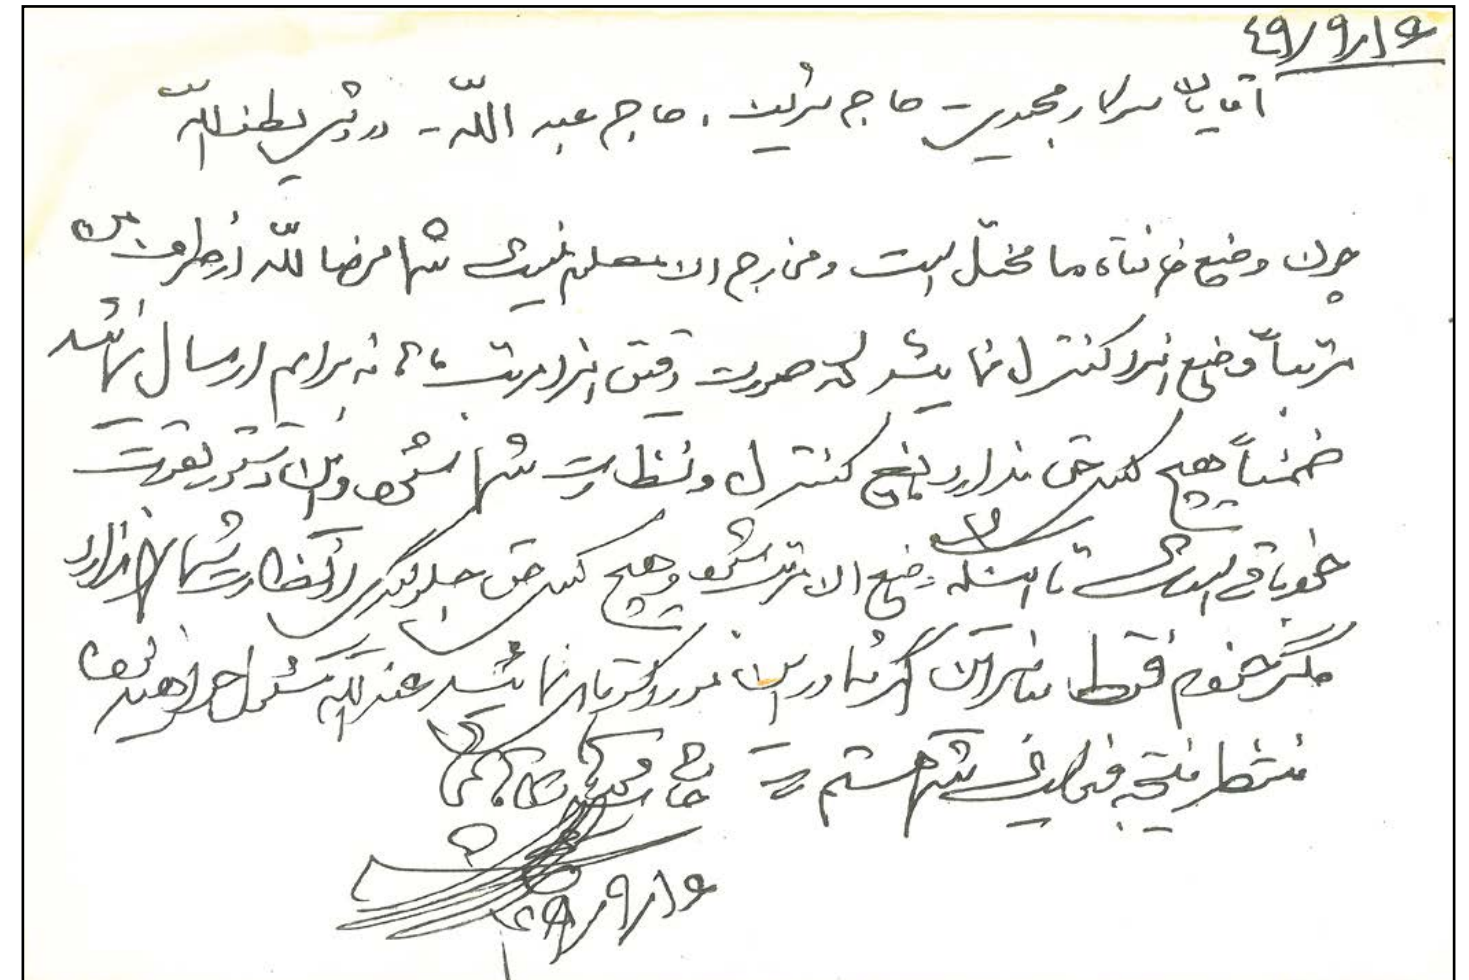 ۴۹/۹/۱۶
آقایان سرکار محمدی - حاج شرکت ، حاج عبد الله - درویش لطف الله
چون وضع خانقاه ما مختل است و مخارج الان معلم نیست شما مرضا لله از طرف من
مرتباً وضع انرا کنترل نمائید که صورت دقیق انرا مرتب برایم ارسال نمائید
ضمناً هیچ کس حق ندارد کنترل و نظارت شما شود و این دستور بقوت
خود باقی است تا اینکه وضع الان مرتب شود و هیچ کس حق جلوگیری از نظارت شما را ندارد
مگر خودم فقط بنابراین اگر شما در این مورد کوتاهی نمائید عند الله مسئول خواهید بود
منتظر نتیجه فعالیت شما هستم
۴۹/۹/۱۶